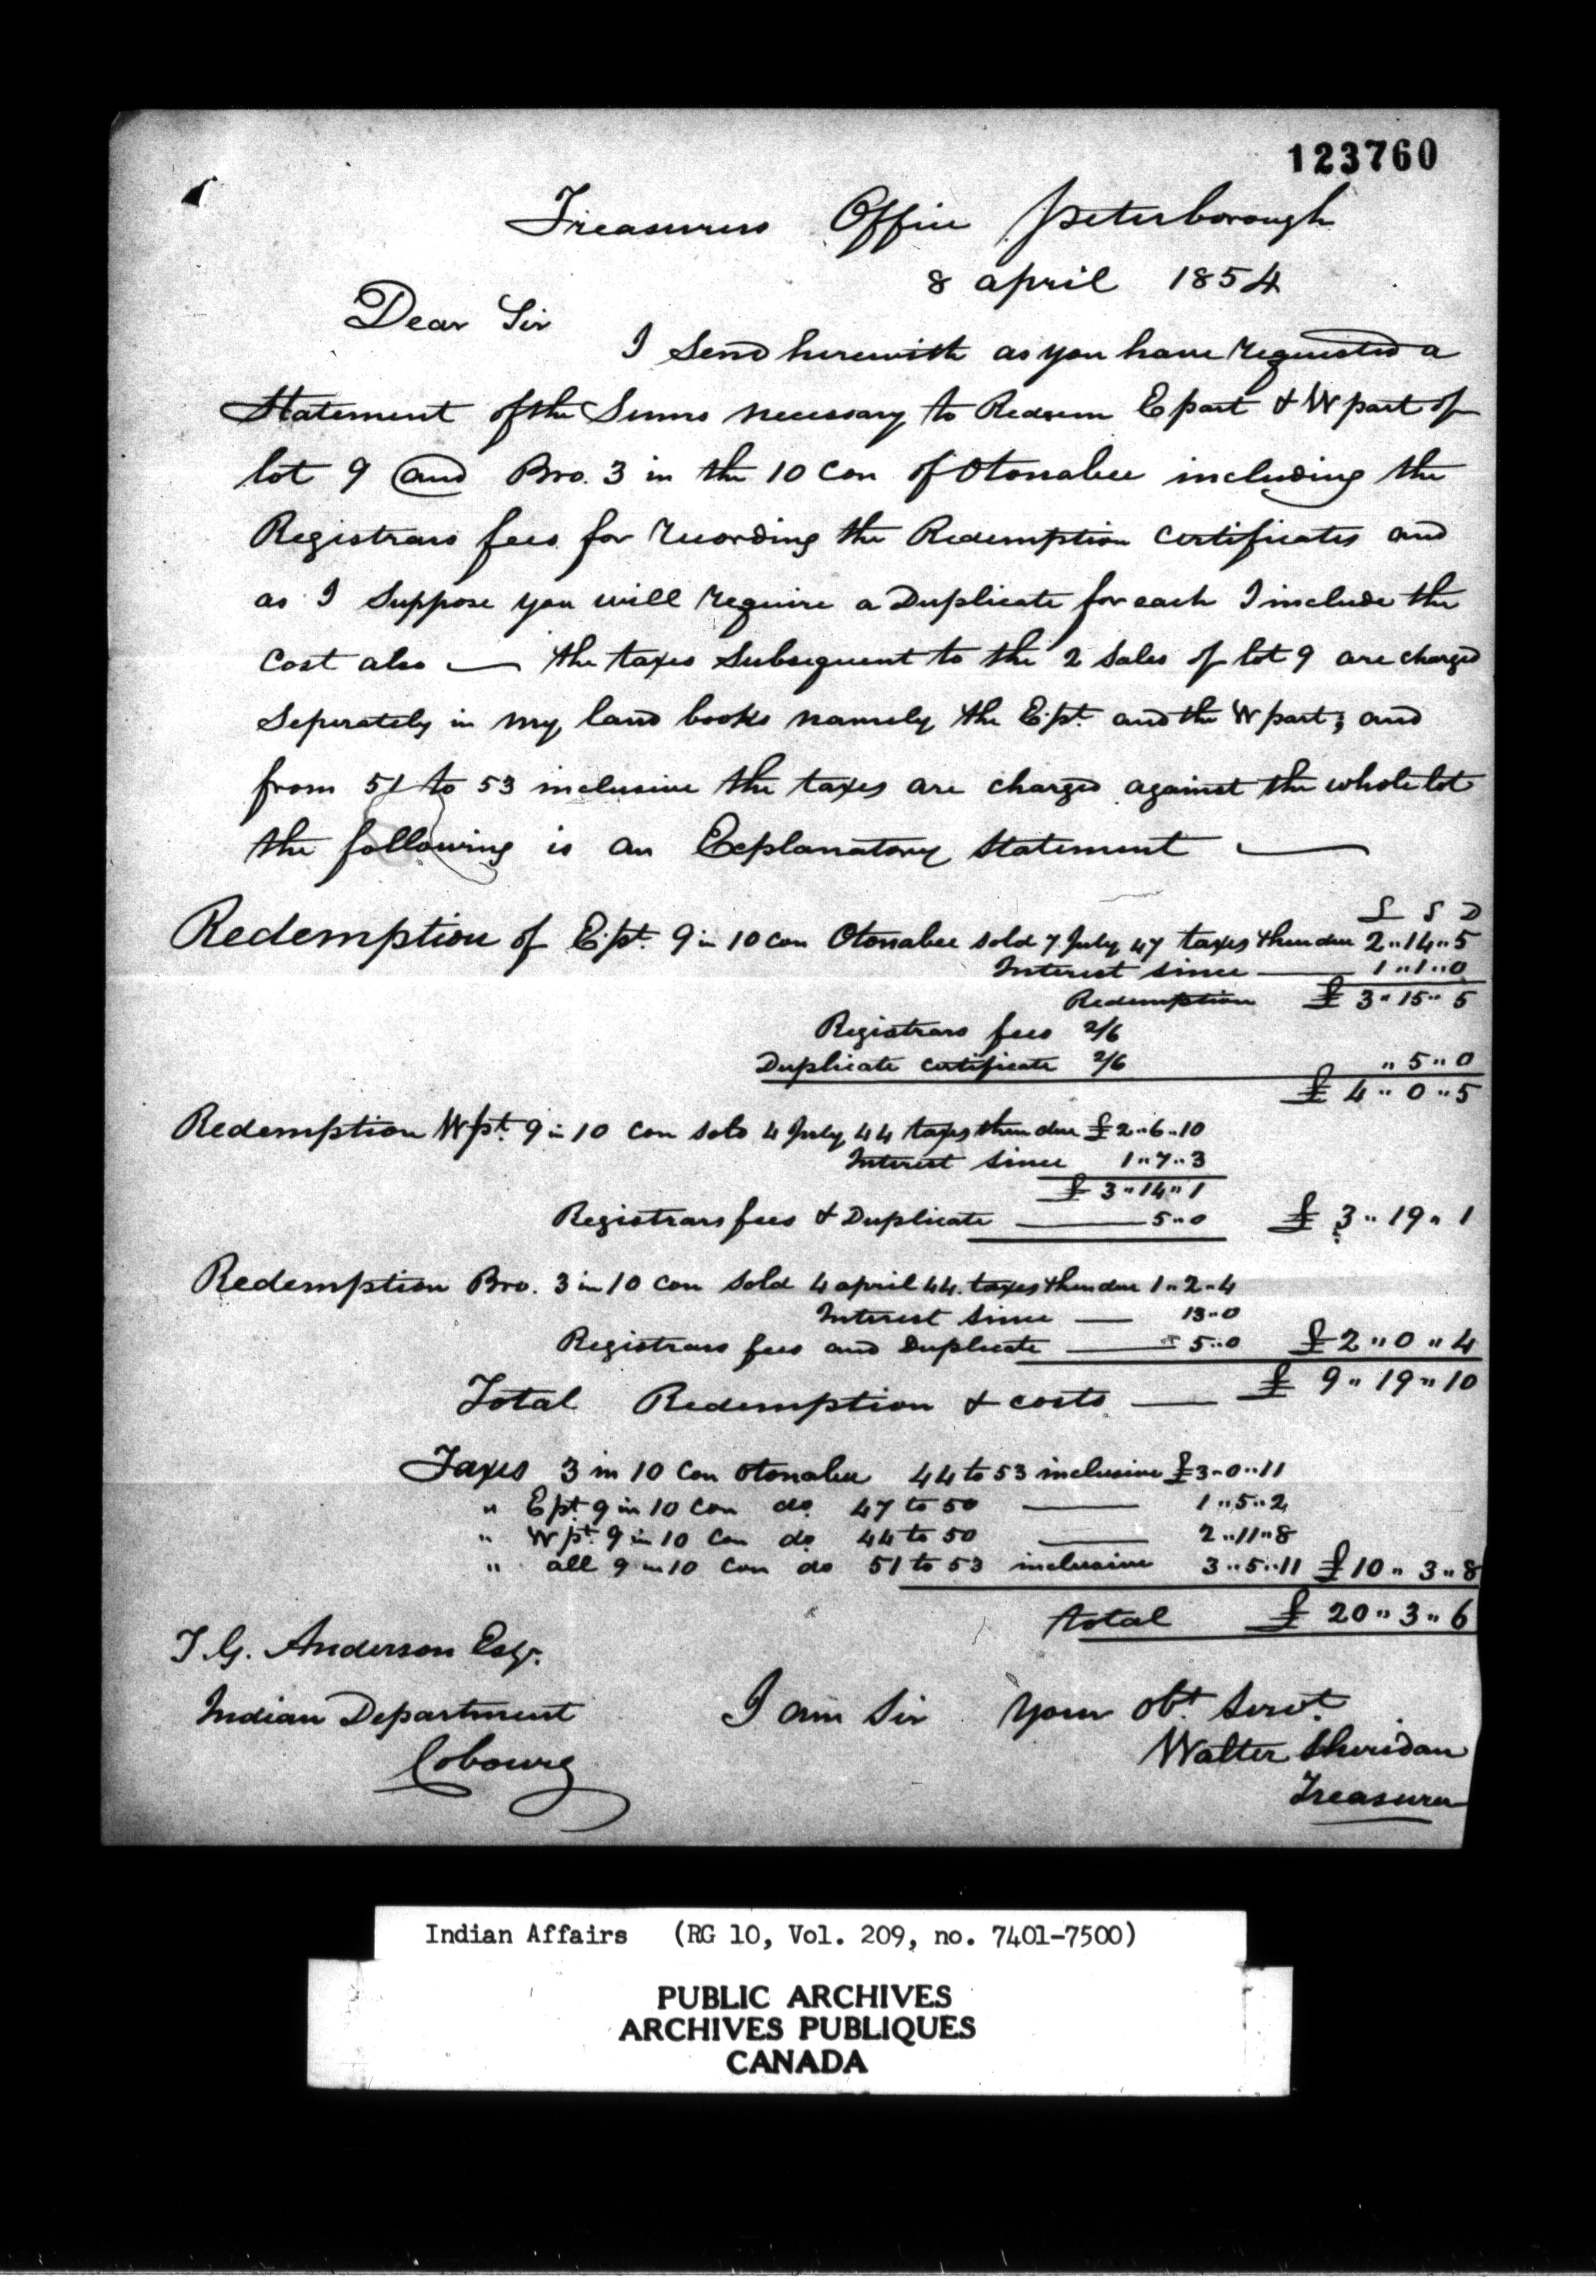 123760
Treasurers Office Peterborough
8 april 1854
Dear Sir
I Send herewith as you have requested a
Statement of the Sums necessary to Redeem E part & W part of
lot 9 and Bro. 3 in the 10 Con of Otonabee including the
Registrars fees for recording the Redemption Certificates and
as I Suppose you will require a Duplicate for each I include the
Cost also — the taxes Subsequent to the 2 Sales of lot 9 are charged
Seperately in my land books namely the E.pt. and the W part; and
from 51 to 53 inclusive the taxes are charged against the whole lot
the following is an Explanatory Statement —
£ S D
Redemption of E.pt. 9 in 10 Con Otonabee sold 7 July 47 taxes then due 2"14"5
Interest since — 1"1"0
Redemption £ 3"15"5
Registrars fees 2/6
Duplicate Certificate 2/6 "5"0
£ 4"0"5
Redemption W pt. 9 in 10 Con sold 4 July 44 taxes then due £2"6"10
Interest Since 1"7"3
£ 3"14"1
Registrars fees & Duplicate — 5"0 £ 3"19"1
Redemption Bro. 3 in 10 Con Sold 4 april 44. taxes then due 1"2"4
Interest Since — 13"0
Registrars fees and Duplicate — "5"0 £2"0"4
Total Redemption & costs — £ 9"19"10
Taxes 3 in 10 Con Otonabee 44 to 53 inclusive £3"0"11
" E pt. 9 in 10 Con do. 47 to 50 — 1"5"2
" W pt. 9 in 10 Con do 44 to 50 — 2"11"8
" all 9 in 10 Con do 51 to 53 inclusive 3"5"11 £10"3"8
total £ 20"3"6
T. G. Anderson Esqr.
Indian Department
Cobourg
I am Sir Your Obt. Servt.
Walter Sheridan
Treasurer
Indian Affairs (RG 10, Vol. 209, no. 7401-7500)
PUBLIC ARCHIVES
ARCHIVES PUBLIQUES
CANADA